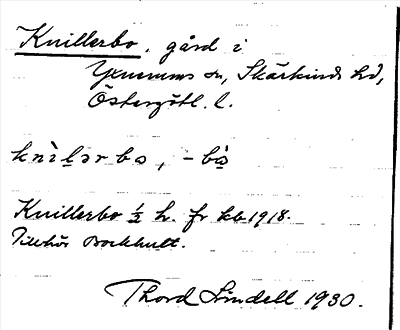 Knillerbo, gård i
Yxnerums sn, Skärkinds hd,
Östergötl. l.
knìlərbo, -bò
Knillerbo ½ h. fr kb 1918.
Tillhör Borkhult.
Thord Lindell 1930.